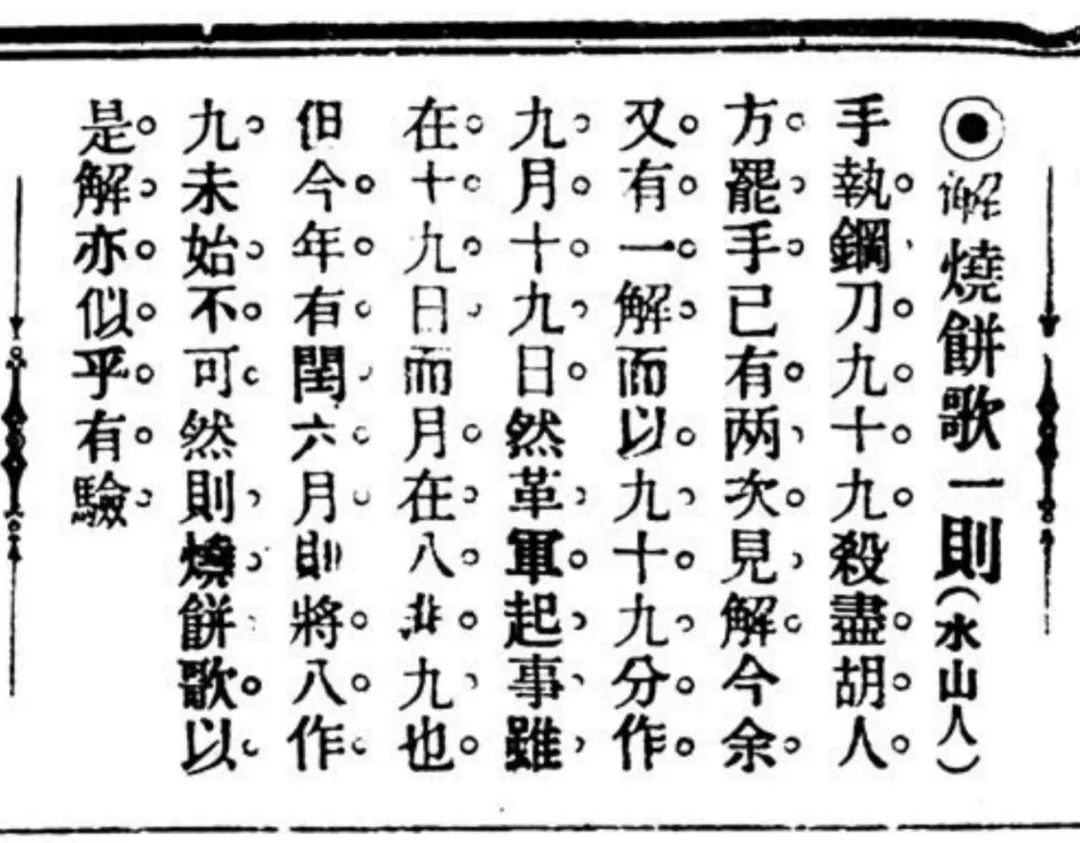 ◉解燒餅歌一則(水山人)
手執鋼刀九十九殺盡胡人
方罷手已有两次見解今余
又有一解而以九十九分作
九月十九日然革軍起事雖
在十九日而月在八非九也
但今年有閏六月則將八作
九未始不可然則燒餅歌以
是解亦似乎有驗